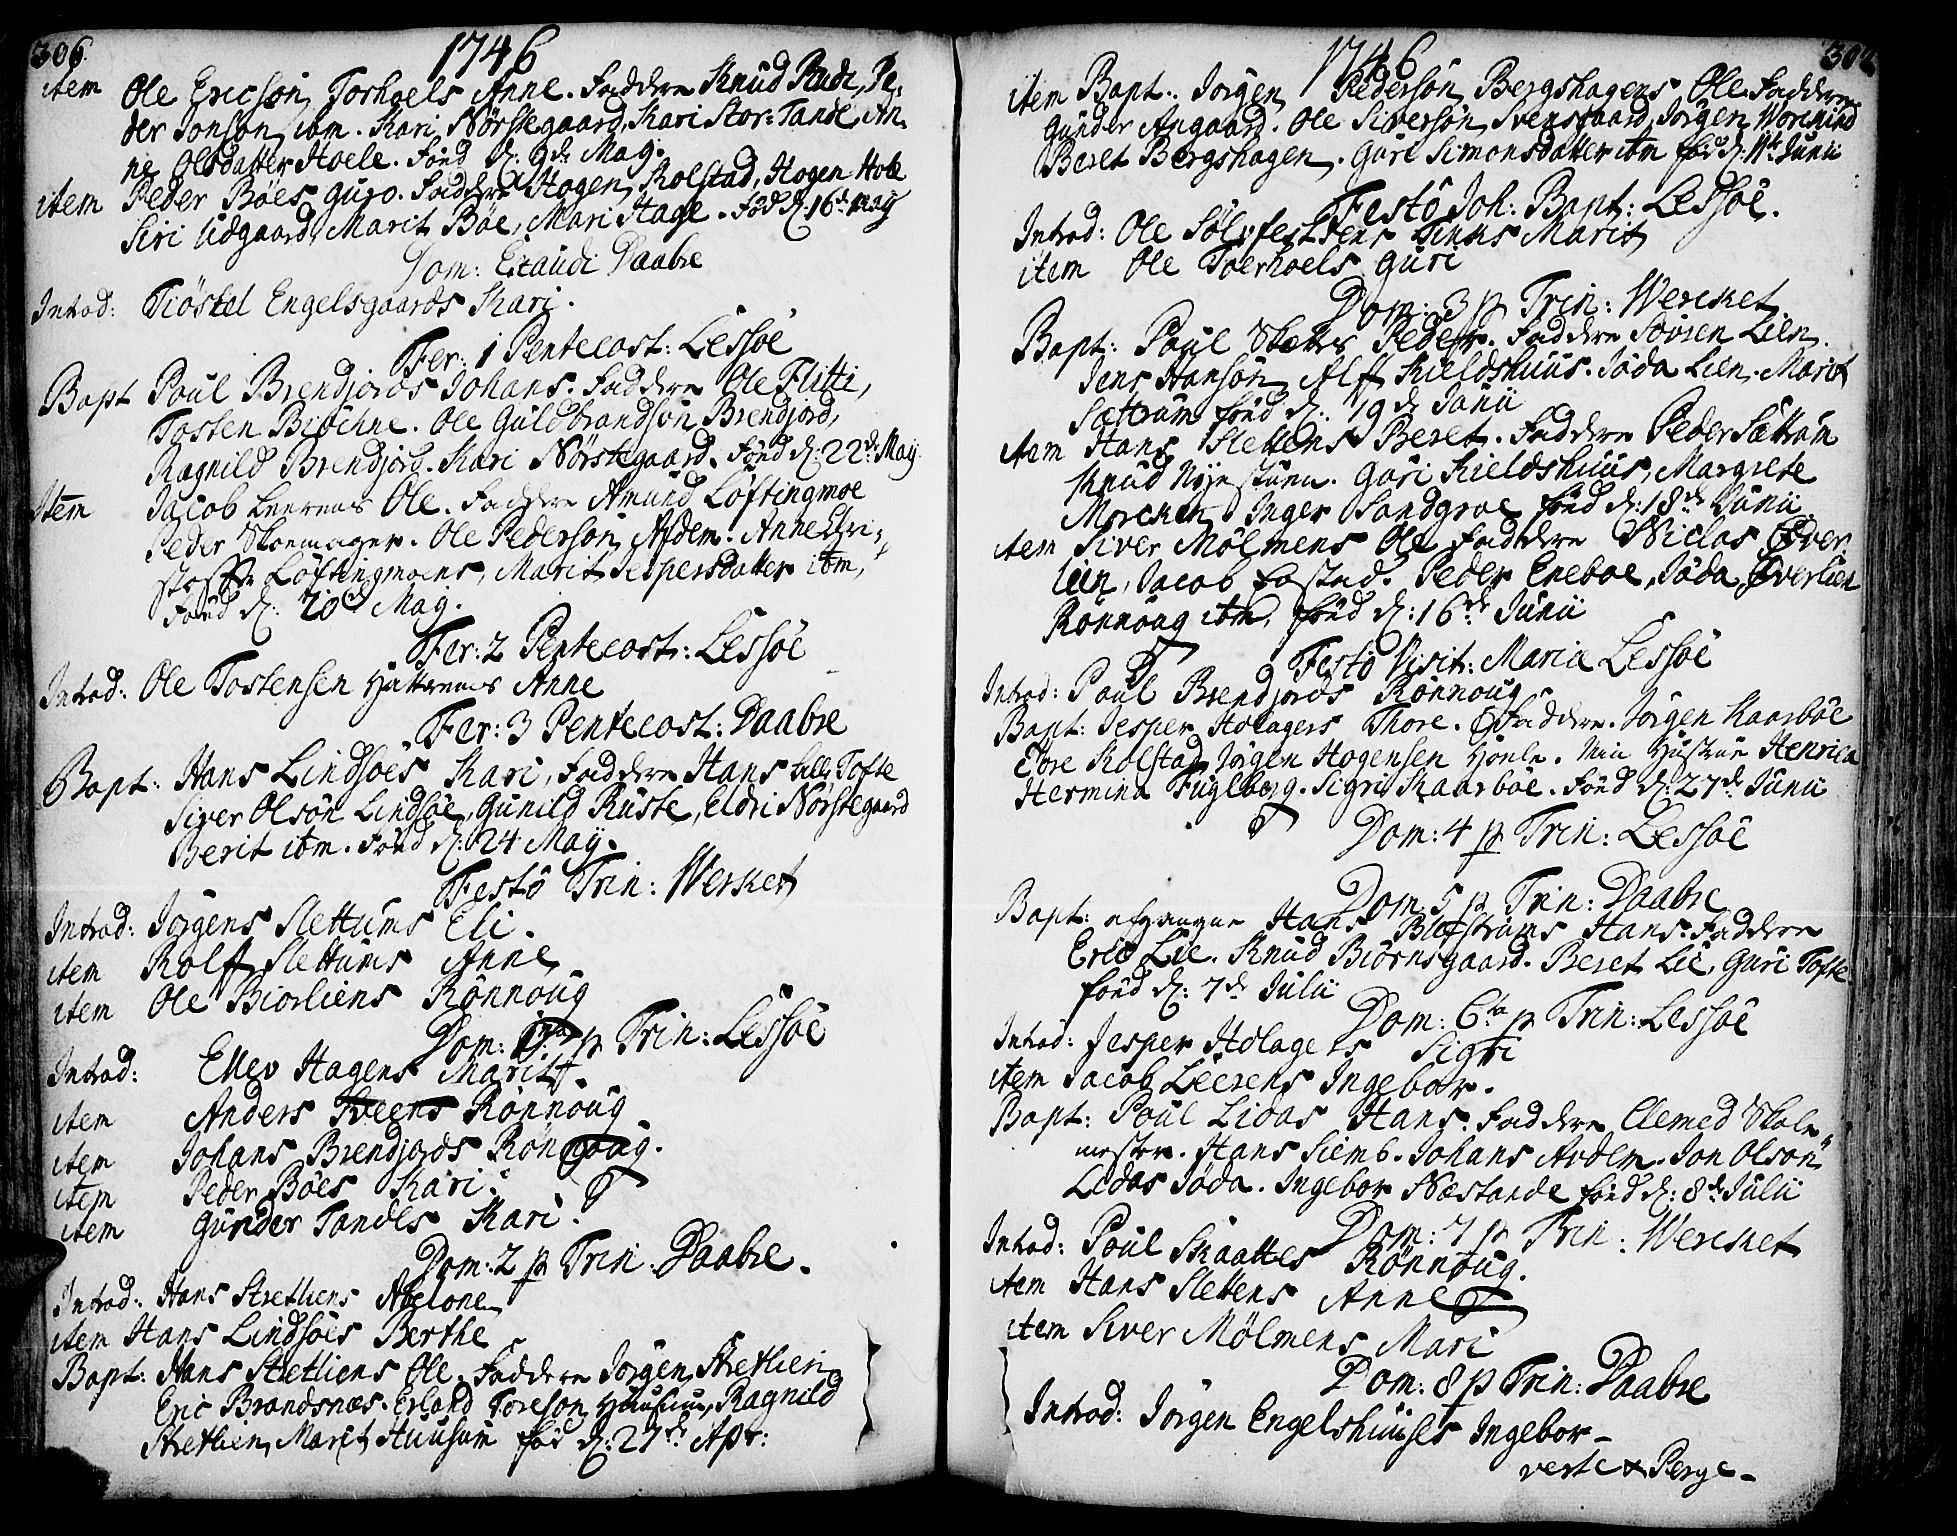 306.
1746
item Ole Ericsøn Torhoels Anne. Faddere Knud Rude, Pe-
der Jonsøn ibm. Kari Nørstegaard, Kari Stor-Tande, An-
ne Olsdatter Hoele. Fønd d: 9de May.
item Peder Bøes Guro. Faddere Hogen Kolstad, Hogen Hole
Siri Udgaard, Marit Bøe, Mari Hage. Fød d: 16de May
Dom: Exaudi Daabre
Introd: Tiøstel Engelsgaards Kari.
Fer: 1 Pentecost: Lessøe
Bapt Poul Brendjords Johans. Faddere Ole Flitti,
Tosten Biøchne. Ole Guldbrandsøn Brendjord,
Ragnild Brendjord. Kari Nørstegaard. Fønd d: 22de May
Item Jacob Leerens Ole. Faddere Amund Løftingmoe
Peder Skoemager. Ole Pedersøn Afdem. Anne Chri-
stoffr Løftingmoens, Marit Jespersdatter ibm,
Fønd d: 20de May.
Fer: 2 Pentecost: Lessøe
Introd: Ole Tostensen Hattrems Anne
Fer: 3 Pentecost: Daabre
Bapt: Hans Lindsøes Kari, Faddere Hans Lille Tofte
Siver Olsøn Lindsøe, Gunild Ruste, Eldri Nørstegaard
Berit ibm. Fønd d: 24 May.
Festo Trin: Wercket
Introd: Jørgens Slettums Eli.
item Rolff Slettums Anne
item Ole Biorliens Rønnoug
Dom: p Trin: Lessøe
Introd: Ellev Hagens Marit.
item Anders Tveens Rønnoug
item Johans Brendjords Rønnoug.
item Peder Bøes Kari.
item Gunder Tandes Kari.
Dom: 2 p Trin: Daabre.
Introd: Hans Stretliens Abelone
item Hans Lindsøes Berthe
Bapt: Hans Stretliens Ole. Faddere Jørgen Stretlien
Eric Brandsnæs. Erland Toresøn Huusum, Ragnild
Stretlien, Marit Huusum fød d: 27de Apr:
1746
item Bapt: Jørgen Pedersøn Bergshagens Ole. Faddere
Gunder Angaard. Ole Siversøn Svensgaard, Jørgen
Beret Bergshagen. Guri Simonsdatter ibm fød d: 11te Junii
Festo Joh: Bapt: Lessøe.
Introd: Ole Sølvfestsens Marit
item Ole Toerhoels Guri
Dom: 3 p Trin: Wercket
Bapt: Poul Skottes Peder. Faddere Sovren Lien.
Jens Hansøn, Alff Kieldshuus. Joda Lien. Marit
Sættrum fønd d: 19de Junii
item Hans Slettens Beret. Faddere Peder Sættrum
Knud Nyestuen. Guri Kieldshuus, Margrete
Morcken, Inger Sandgroe fønd d: 18de Junii
item Siver Mølmens Ole. Faddere Niclas Øver
lien, Jacob Fostad. Peder Eneboe, Joda Øverlien
Rønnoug ibm, fønd d: 16de Junii
Festo Visit: Mariæ Lessøe
Introd: Poul Brendjords Rønnoug
Bapt: Jesper Holagers Thore. Faddere. Jørgen Kaarbøe
Tore Kolstad, Jørgen Hogensen Hoele. Min Hustrue Henrica
Hermina Fuglberg. Sigri Kaarbøe. Fønd d: 27de Junii
Dom: 4 p Trin: Lessøe
Dom: 5 p Trin: Daabre
Bapt: afgangne Hans Blefstrøms Hans. Faddere
Eric Lie. Knud Biørnsgaard. Beret Lie, Guri Tofte
fønd d: 7de Julii
Dom: 6ta p Trin: Lessøe
Introd: Jesper Holagers Sigri
item Jacob Leerens Ingebor.
Bapt: Poul Lidas Hans. Faddere Clemed Skole-
mester. Hans Siemb. Johans Avdem. Jon Olsøn
Lidas Joda. Ingebor Næstande fønd d: 8de Julii
Dom: 7 p Trin: Wercket
Introd: Poul Skaattes Rønnoug.
item Hans Slettens Anne
item Siver Mølmens Mari
Dom: 8 p Trin: Daabre
Introd: Jørgen Engelshuuses Ingebor
verte & Perge